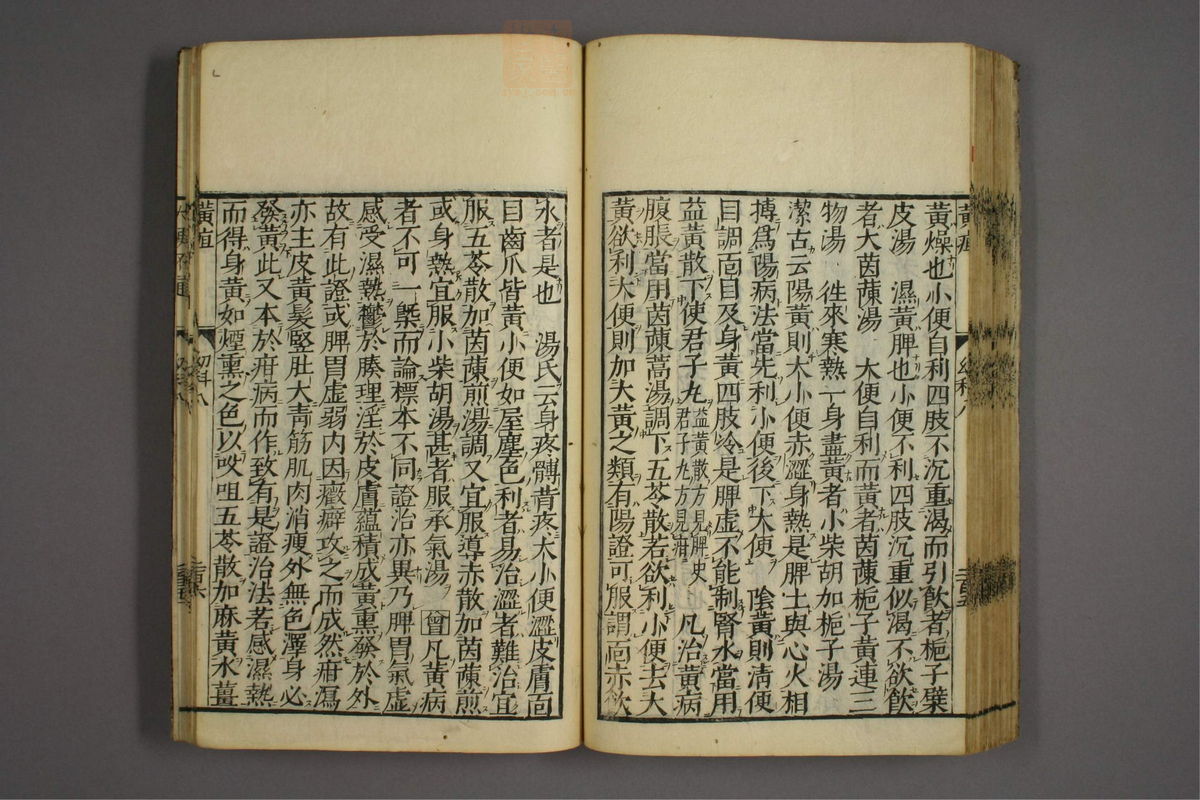 黃燥也小便自利四肢不沉重渴而引飲者梔子蘗
皮湯　濕黃脾也小便不利四肢沉重似渴不欲飲
者大茵蔯湯　大便自利而黃者茵蔯梔子黃連三
物湯　徃來寒熱一身盡黃者小柴胡加梔子湯
潔古云陽黃則大小便赤澀身熱是脾土與心火相
搏爲陽病法當先利小便後下大便　陰黃則清便
目調靣目及身黃四肢冷是脾虚不能制腎水當用
益黃散下使君子丸益黃散方見脾史君子丸方見疳　凡治黃病
腹脹當用茵蔯蒿湯調下五苓散若欲利小便去大
黃欲利大便則加大黃之類有陽證可服謂靣赤飲
水者是也　湯氏云身疼髆背疼大小便澀皮膚靣
目齒爪皆黃小便如屋塵色利者易治澀者難治宜
服五苓散加茵蔯煎湯調又宜服導赤散加茵蔯煎
或身熱宜服小柴胡湯甚者服承氣湯　曾凡黃病
者不可一槩而論標本不同證治亦異乃脾胃氣虚
感受濕熱鬱於腠理淫於皮膚蘊積成黃熏發於外
故有此證或脾胃虚弱内因癥癖攻之而成然疳瀉
亦主皮黃髮竪肚大青筋肌肉消瘦外無色澤身必
發黃此又本於疳病而作致有是證治法若感濕熱
而得身黃如煙熏之色以㕮咀五苓散加麻黃水薑
黃疸
幼科八